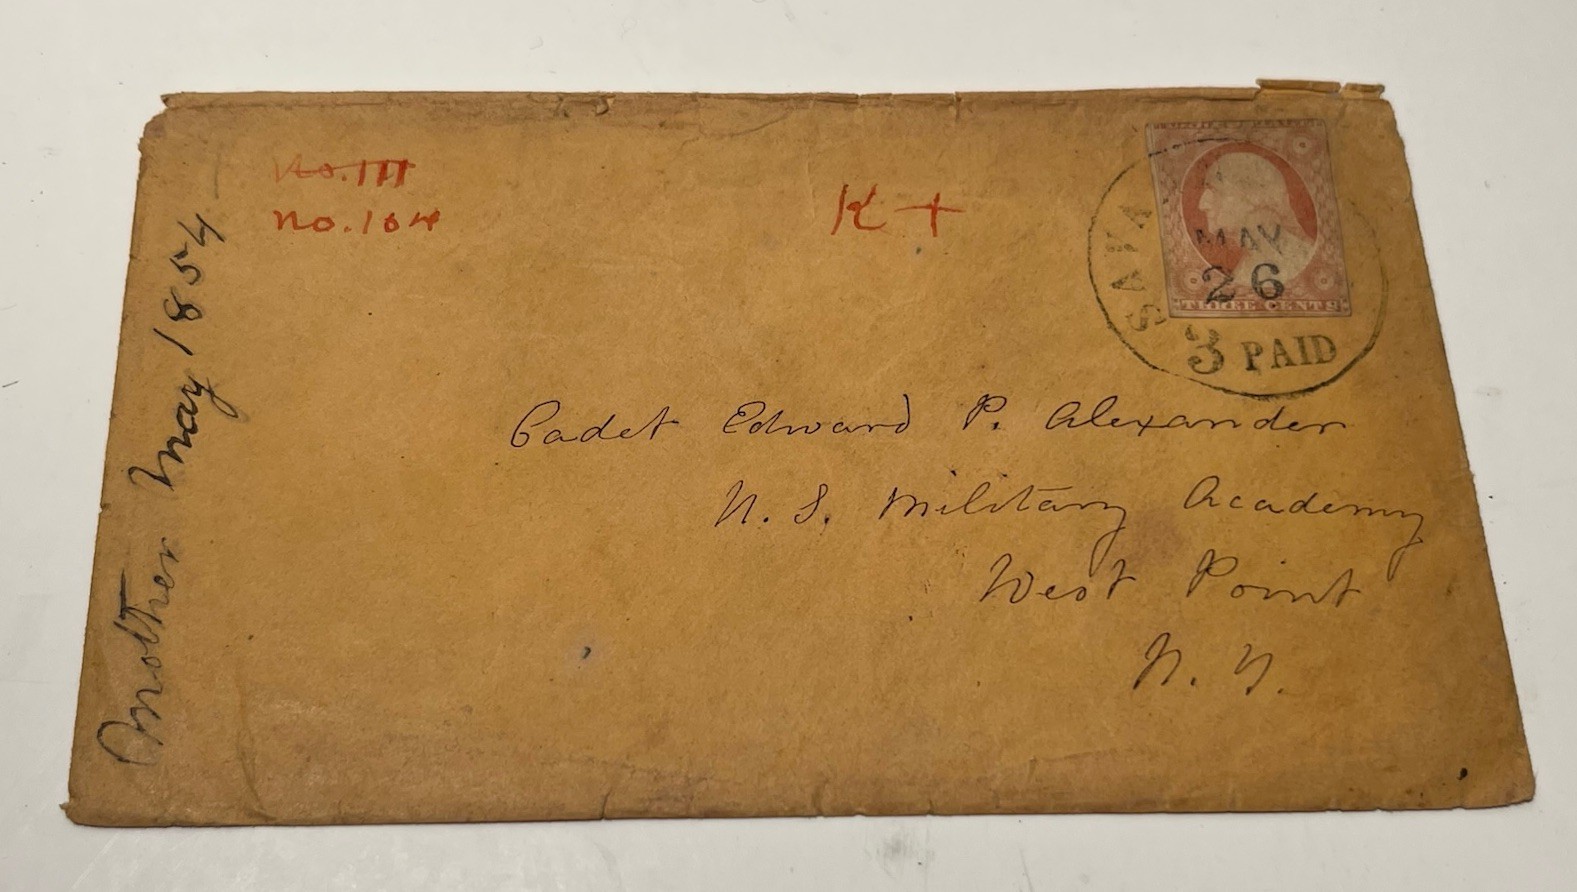 No. 111
No. 104
K +
Mother May 1854
SAVA
MAY
26
3 PAID
THREE CENTS
Cadet Edward P. Alexander
U. S. Military Academy
West Point
N. Y.